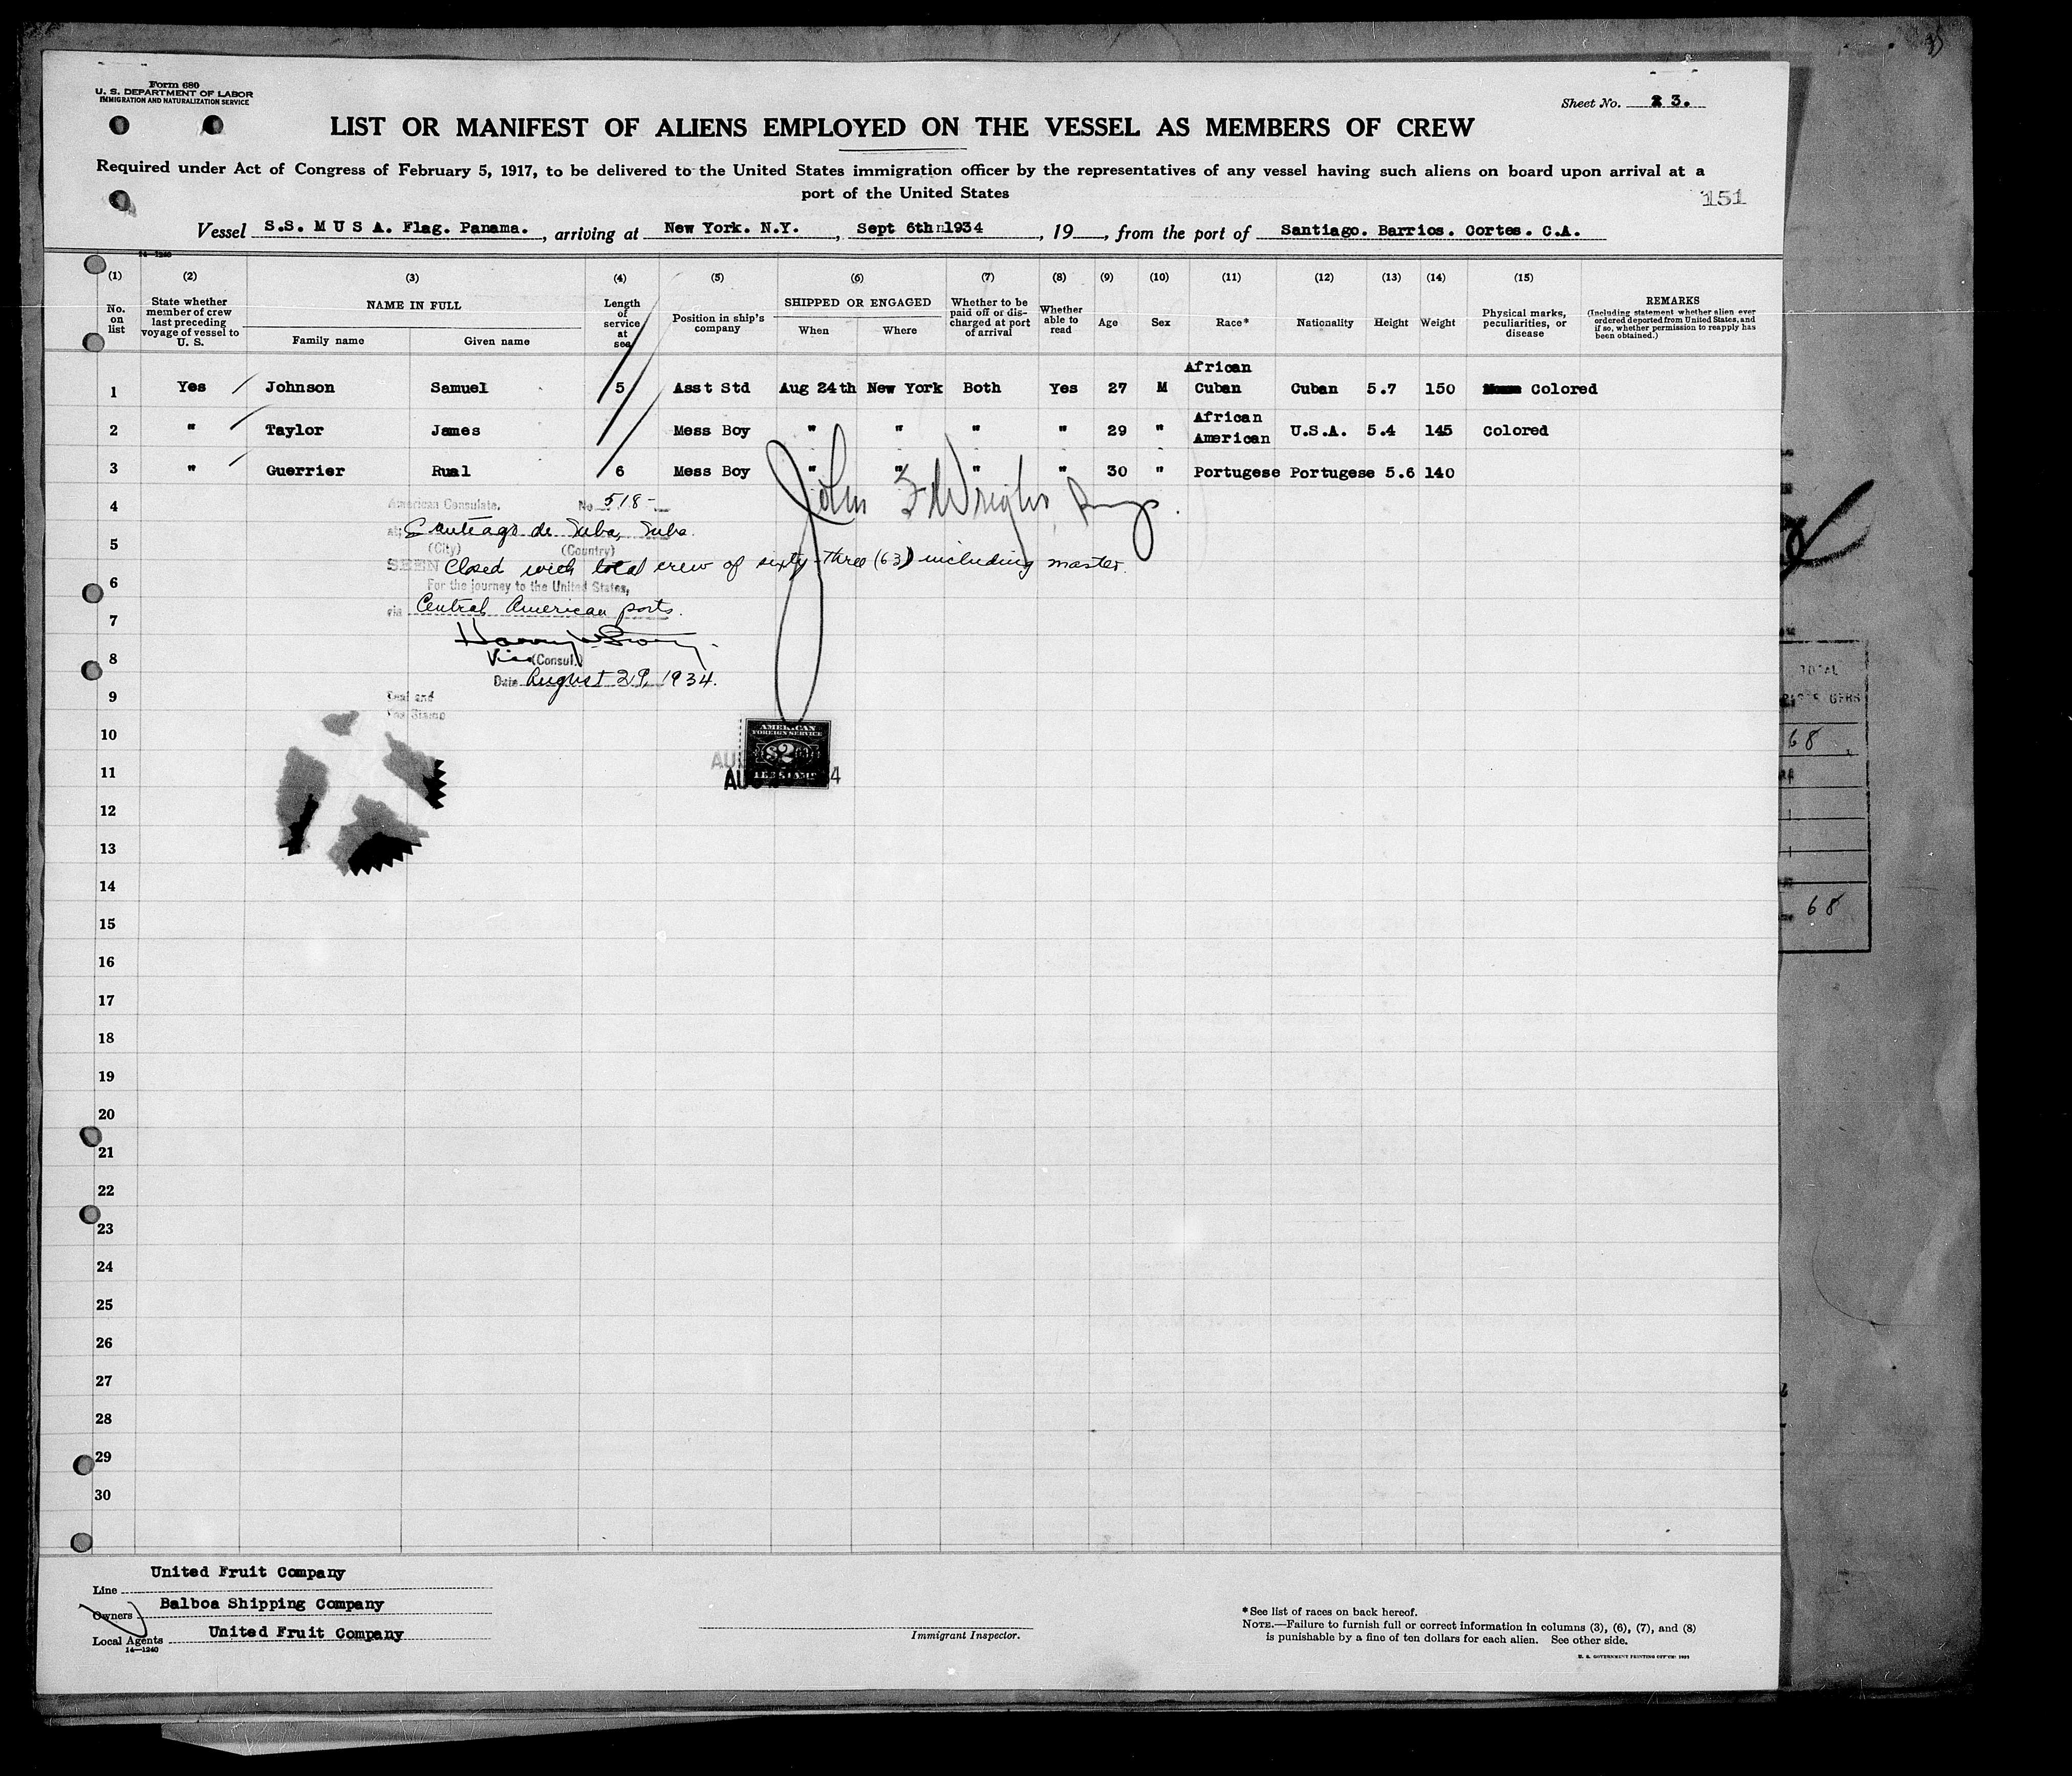 Form 680
U. S. DEPARTMENT OF LABOR
IMMIGRATION AND NATURALIZATION SERVICE
Sheet No. 3.
LIST OR MANIFEST OF ALIENS EMPLOYED ON THE VESSEL AS MEMBERS OF CREW
Required under Act of Congress of February 5, 1917, to be delivered to the United States immigration officer by the representatives of any vessel having such aliens on board upon arrival at a
port of the United States
151
Vessel S.S. M U S A. Flag. Panama. , arriving at New York. N.Y. , Sept 6th 1934 , 19 , from the port of Santiago. Barrios. Cortes. C.A.
14—1240
(1) (2) (3) (4) (5) (6) (7) (8) (9) (10) (11) (12) (13) (14) (15)
No. on list
State whether member of crew last preceding voyage of vessel to U. S.
NAME IN FULL
Family name Given name
Length of service at sea
Position in ship's company
SHIPPED OR ENGAGED
When Where
Whether to be paid off or discharged at port of arrival
Whether able to read
Age Sex Race* Nationality Height Weight
Physical marks, peculiarities, or disease
REMARKS
(Including statement whether alien ever ordered deported from United States, and if so, whether permission to reapply has been obtained.)
1 Yes Johnson Samuel 5 Asst Std Aug 24th New York Both Yes 27 M African Cuban Cuban 5.7 150 Colored
2 " Taylor James Mess Boy " " " " 29 " African American U.S.A. 5.4 145 Colored
3 " Guerrier Rual 6 Mess Boy " " " " 30 " Portugese Portugese 5.6 140
John Wright
4
American Consulate, No. 518-
at Santiago de Cuba, Cuba.
5
(City) (Country)
SEEN Closed with total crew of sixty-three (63) including master.
6
For the journey to the United States,
via Central American ports.
7
8
Vice (Consul.)
Date August 29, 1934.
9
Seal and
Fee Stamp
10
AMERICAN
FOREIGN SERVICE
$2
FEE STAMP
11
12
13
14
15
16
17
18
19
20
21
22
23
24
25
26
27
28
29
30
TOTAL
68
68
Line United Fruit Company
Owners Balboa Shipping Company
Local Agents United Fruit Company
14—1240
Immigrant Inspector.
*See list of races on back hereof.
NOTE.—Failure to furnish full or correct information in columns (3), (6), (7), and (8)
is punishable by a fine of ten dollars for each alien. See other side.